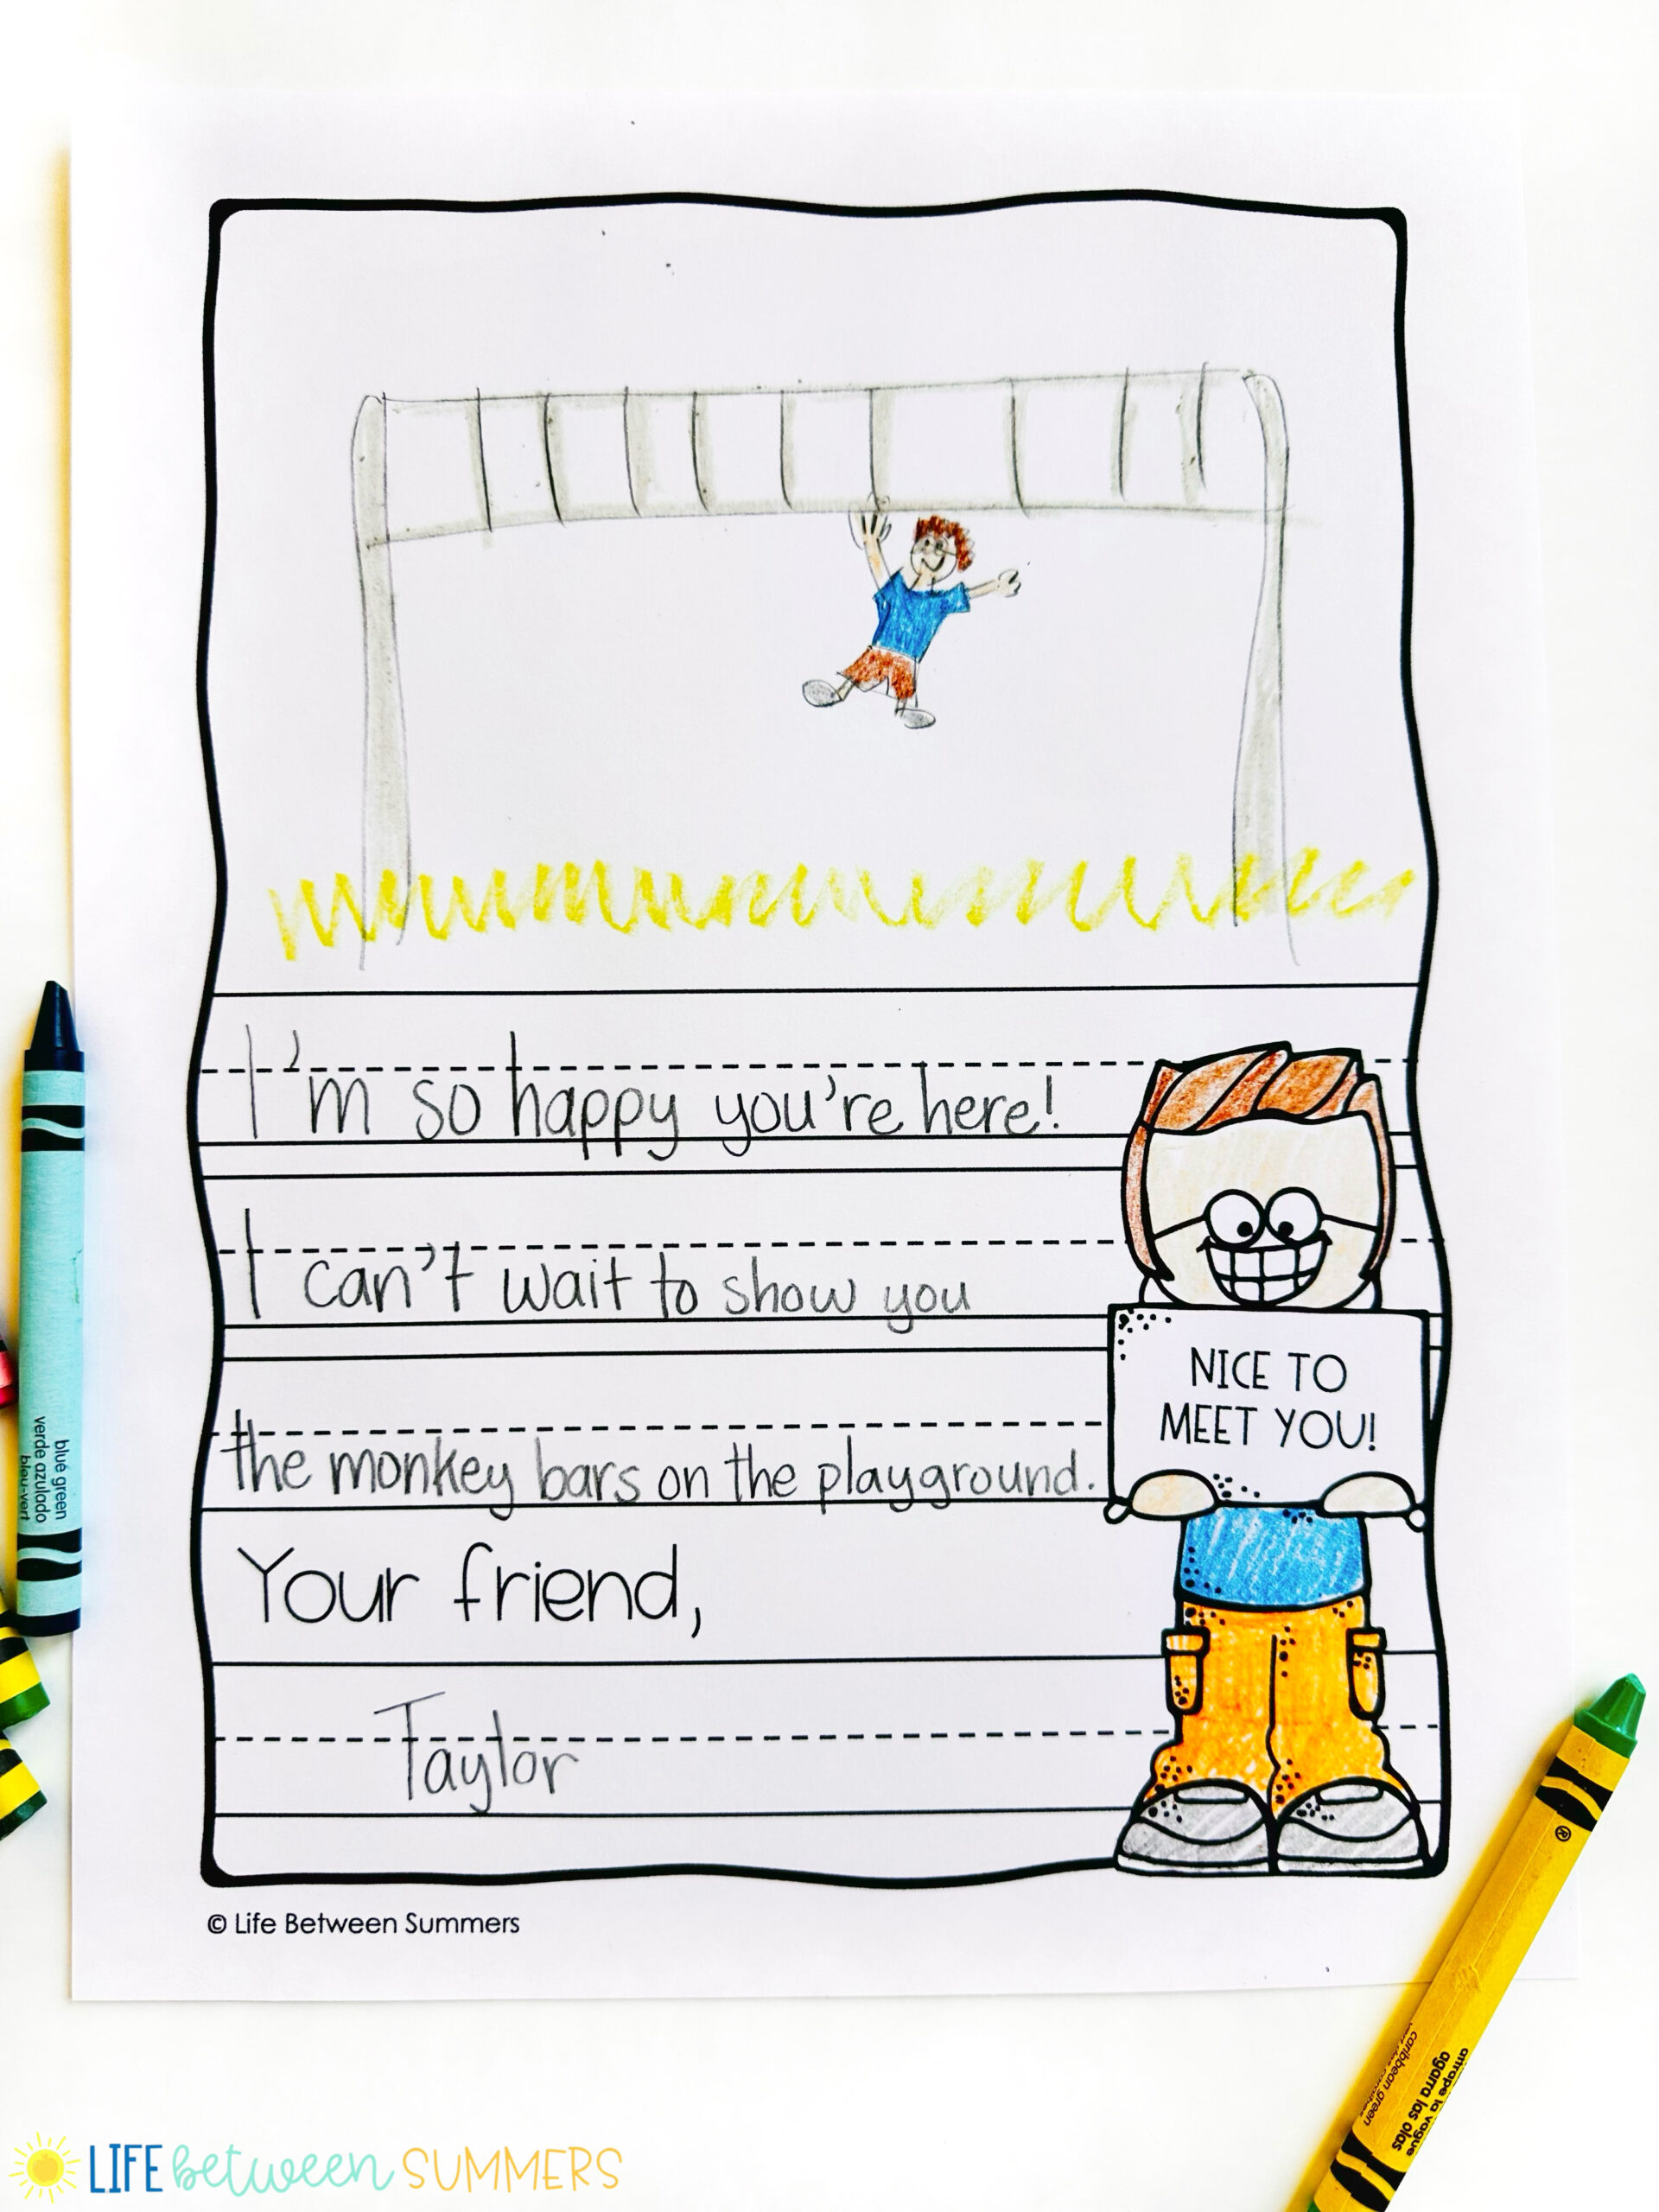 I'm so happy you're here!
I can't wait to show you
the monkey bars on the playground.
NICE TO
MEET YOU!
Your friend,
Taylor
© Life Between Summers
blue green
verde azulado
bleu-vert
®
caribbean green
atrape la vague
agarra las olas
LIFE between SUMMERS